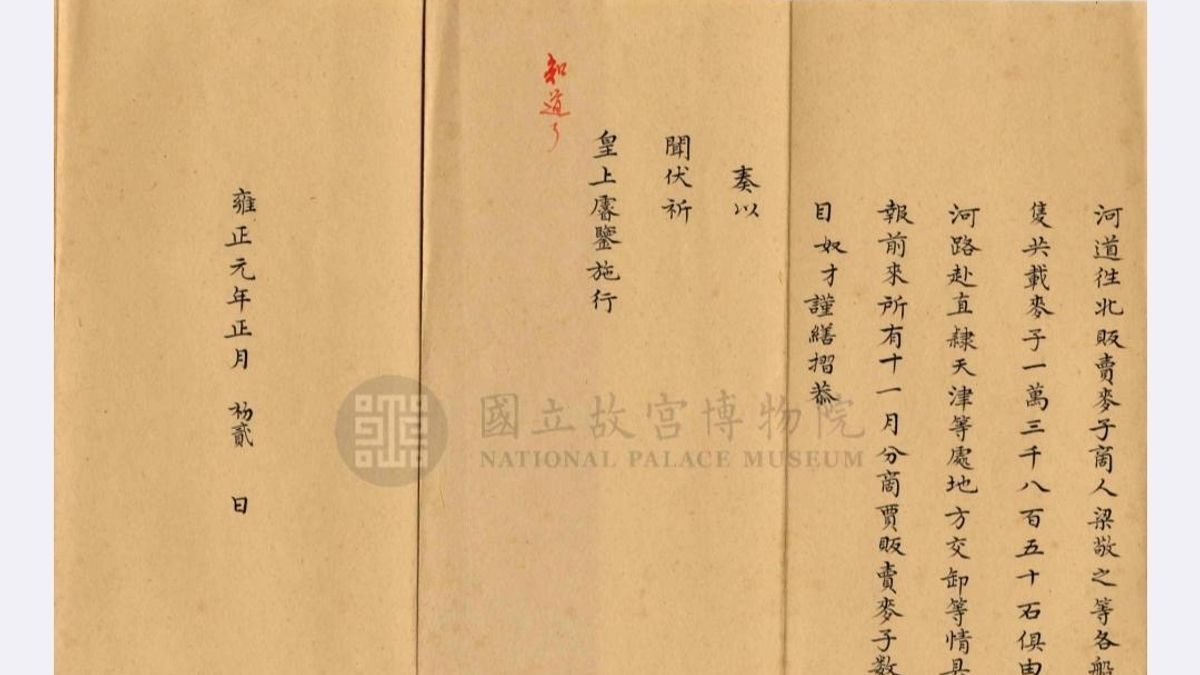 河道往北販賣麥子商人梁敬之等各船
隻共載麥子一萬三千八百五十石俱由
河路赴直隸天津等處地方交卸等情具
報前來所有十一月分商賈販賣麥子数
目奴才謹繕摺恭
奏以
聞伏祈
皇上睿鑒施行
知道了
雍正元年正月 初貳 日
國立故宮博物院
NATIONAL PALACE MUSEUM